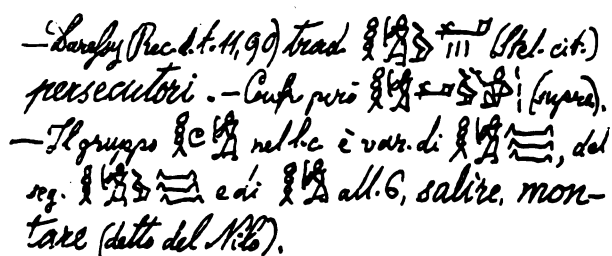 — Daressy (Rec. d. t. 11, 90) trad. (Stel. cit.)
persecutori. — Confr. però (supra).
— Il gruppo nel l. c. è var. di , del
seg. e di all. 6, salire, mon-
tare (detto del Nilo).